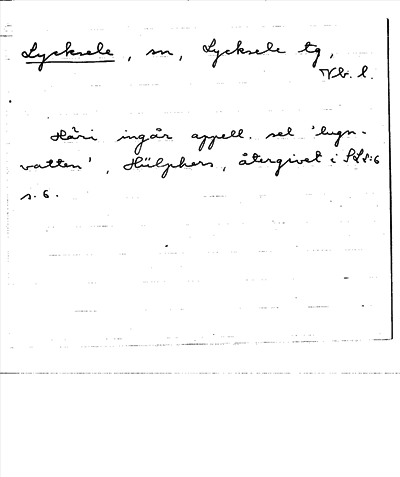 Lycksele, sn, Lycksele tg,
Vb. l.
Häri ingår appell. sel 'lugn-
vatten', Hülphers, återgivet i SLS:6
s. 6.